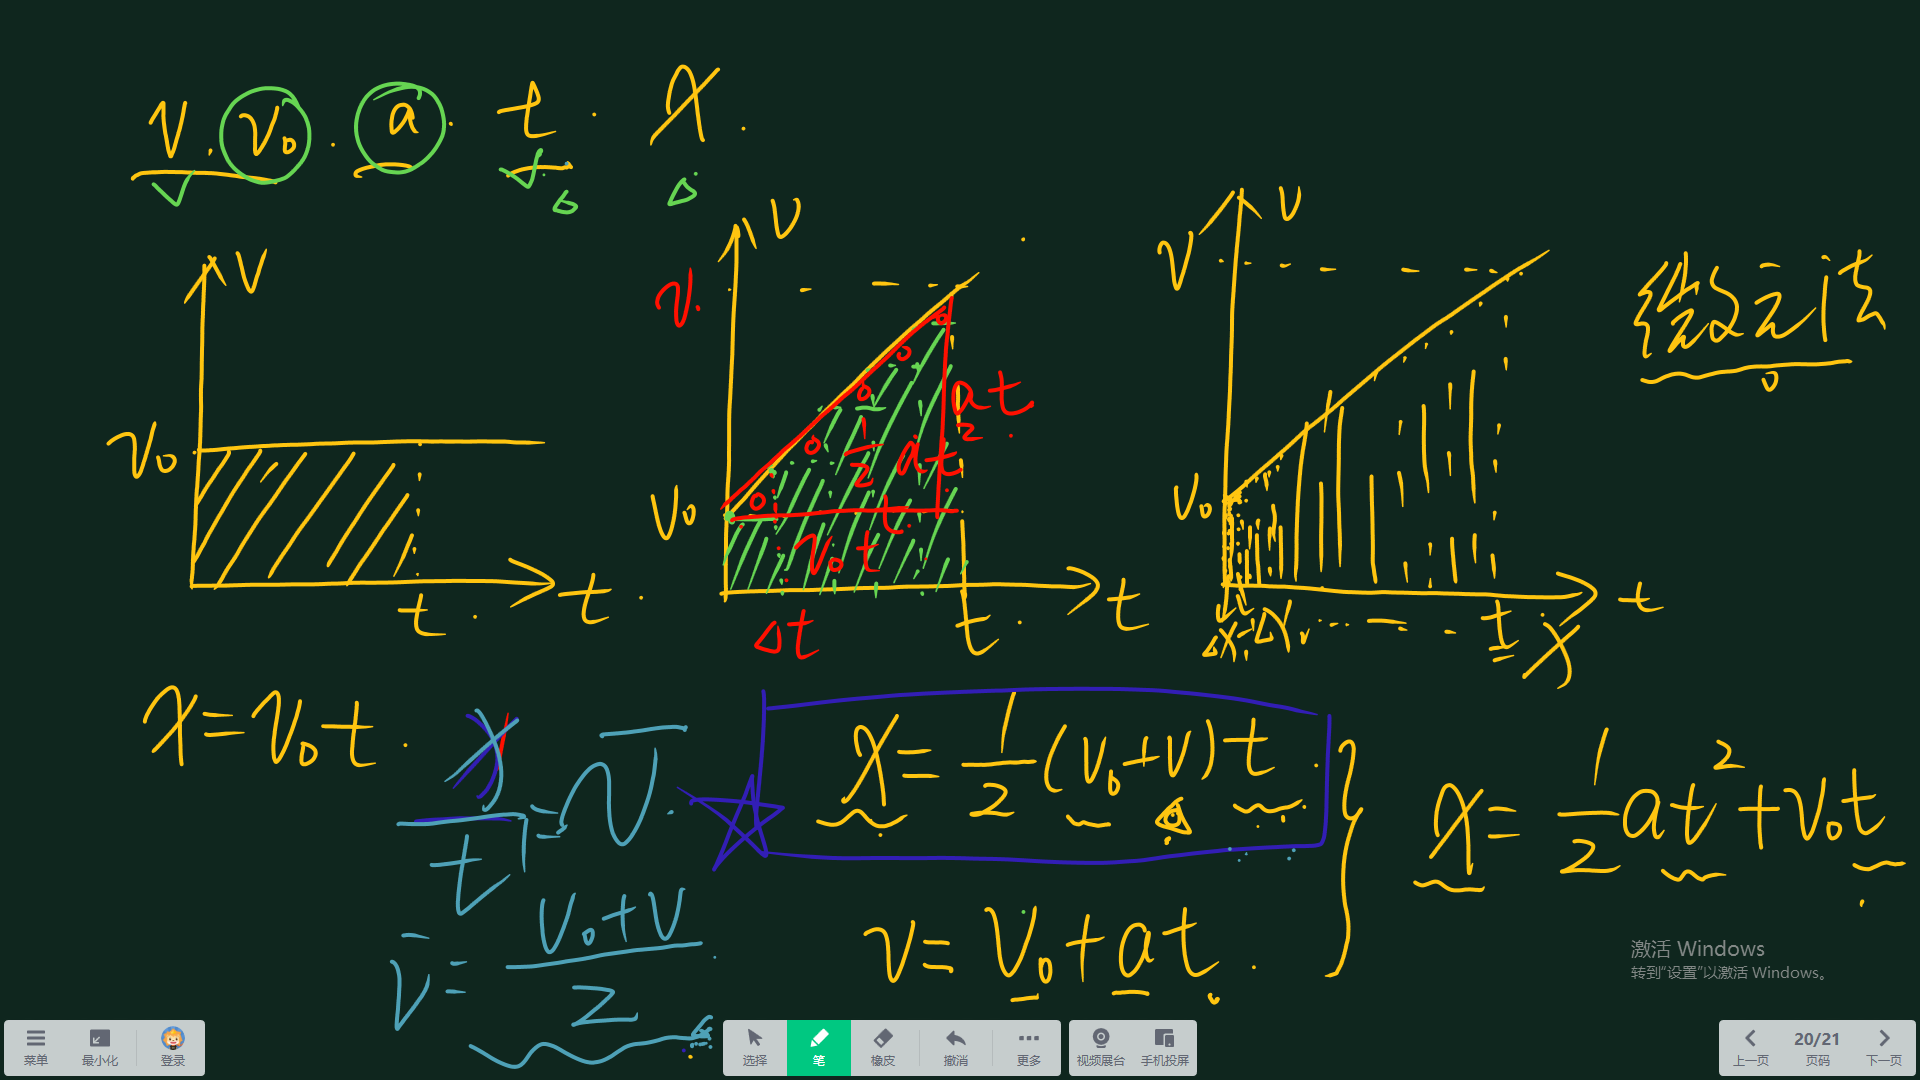 v. v₀. a. t. x.
v
v₀
t
t.
v
v.
at
½at²
v₀
t
v₀t
Δt
t.
t
v
v
v₀
Δx₁ Δx₂ ......
t
t
x
微元法
x=v₀t.
x/t=v̄.
v̄=(v₀+v)/2
x=½(v₀+v)t.
v=v₀+at.
x=½at²+v₀t
激活 Windows
转到“设置”以激活 Windows。
菜单 最小化 登录 选择 笔 橡皮 撤消 更多 视频展台 手机投屏 上一页 20/21 页码 下一页